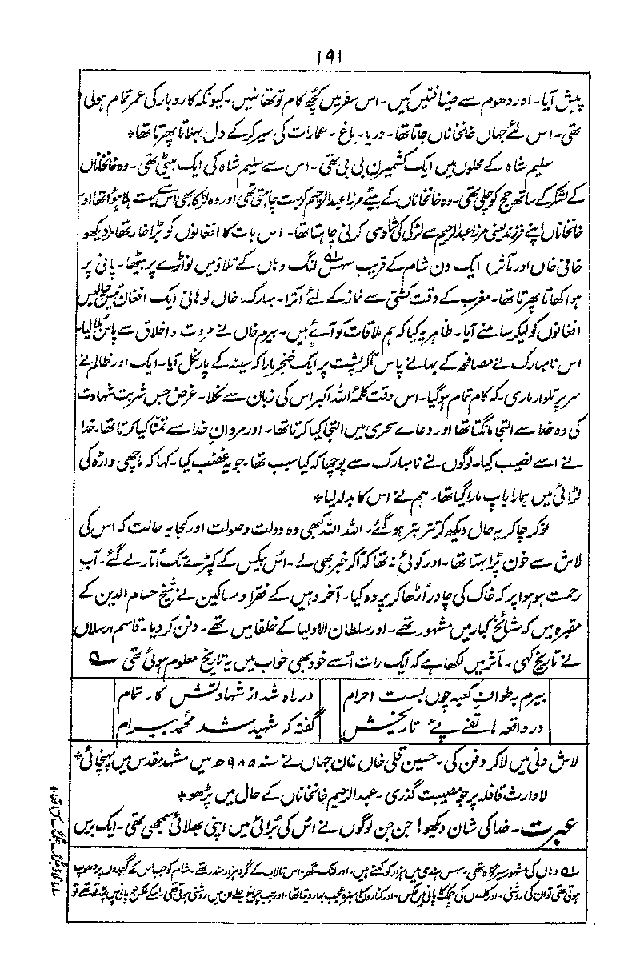 ۱۹۱
پیش آیا۔ اور دھوم سے ضیافتیں کیں۔ اس سفر میں کچھ کام تو تھا نہیں۔ کیونکہ کاروبار کی عمر تمام ہولی
تھی۔ اس لئے جہاں خانخاناں جاتا تھا۔ دریا۔ باغ۔ عمارات کی سیر کر کے دل بہلاتا پھرتا تھا *
سلیم شاہ کے محلوں میں ایک کشمیرن بی بی تھی۔ اس سے سلیم شاہ کی ایک بیٹی تھی۔ وہ خانخاناں
کے لشکر کے ساتھ حج کو چلی تھی۔ وہ خانخاناں کے بیٹے مرزا عبدالرحیم کو بہت چاہتی تھی اور وہ لڑکا بھی اس سے بہت ہلا ہوا تھا اور
خانخاناں اپنے فرزند یعنی مرزا عبدالرحیم سے لڑکی کی شادی کرنی چاہتا تھا۔ اس بات کا افغانوں کو بڑا خار تھا (دیکھو
خافی خاں اور مآثر) ایک دن شام کے قریب سہس لنگ وہاں کے تلاؤ میں نواڑے پر بیٹھا۔ پانی پر
ہوا کھاتا پھرتا تھا۔ مغرب کے وقت کشتی سے نماز کے لئے اترا۔ مبارک خاں لوہانی ایک افغان تیس چالیس
افغانوں کو لیکر سامنے آیا۔ ظاہر یہ کیا کہ ہم ملاقات کو آئے ہیں۔ بیرم خاں نے مروت و اخلاق سے پاس بلا لیا۔
اس نامبارک نے مصافحہ کے بہانے پاس آکر پشت پر ایک خنجر مارا کہ سینہ کے پار نکل آیا۔ ایک اور ظالم نے
سر پر تلوار ماری۔ کہ کام تمام ہو گیا۔ اس وقت کلمۂ اللہ اکبر اس کی زبان سے نکلا۔ غرض جس شربتِ شہادت
کی وہ خدا سے التجا مانگتا تھا اور دعائے سحری میں التجا کیا کرتا تھا۔ اور مردانِ خدا سے تمنّا کیا کرتا تھا۔ خدا
نے اُسے نصیب کیا۔ لوگوں نے نامبارک سے پوچھا کہ کیا سبب تھا۔ جو یہ غضب کیا۔ کہا کہ ماچھی واڑہ کی
لڑائی میں ہمارا باپ مارا گیا تھا۔ ہم نے اس کا بدلہ لیا *
نوکر چاکر یہ حال دیکھ کر تتر بتر ہو گئے۔ اللہ اللہ کبھی وہ دولت و صولت اور کجا یہ حالت کہ اُس کی
لاش سے خون پڑا بہتا تھا۔ اور کوئی نہ تھا کہ آکر خبر بھی لے۔ اُس بیکس کے کپڑے تک اُتار لے گئے۔ آب
رحمت ہو ہوا پر کہ خاک کی چادر اُڑھا کر پردہ کیا۔ آخر وہیں کے فقرا و مساکین نے شیخ حسام الدین کے
مقبرہ میں کہ مشائخ کبار میں مشہور تھے۔ اور سلطان الاولیا کے خلفا میں تھے۔ دفن کر دیا۔ قاسم ارسلان
نے تاریخ کہی۔ مآثر میں لکھا ہے کہ ایک رات اُسے خود بھی خواب میں یہ تاریخ معلوم ہوئی تھی
بیرم بطوافِ کعبہ چوں بست احرام در راہ شد از شہادتش کار تمام
در واقعہ ہاتفے پئے تاریخش گفتہ کہ شہید شد محمد بیرام
لاش دلی میں لاکر دفن کی۔ حسین قلی خاں خان جہاں نے سنہ ۹۸۵ھ میں مشہد مقدس میں پہنچائی *
لاوارث قافلہ پر جو مصیبت گذری۔ عبدالرحیم خانخاناں کے حال میں پڑھو *
عبرت۔ خدا کی شان دیکھو! جن جن لوگوں نے اُس کی بُرائی میں اپنی بھلائی سمجھی تھی۔ ایک برس